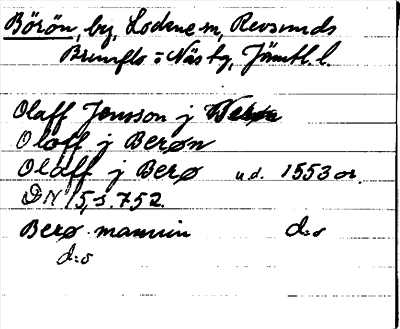 Börön, by, Lockne sn, Revsunds
Brunflo o Näs tg, Jämtl. l.
Olaff Jensson j Berøn
Oloff j Berøn
Olaff j Berø u.d. 1553 or.
DN 15, s. 752.
Berø mannin d:o
d:o